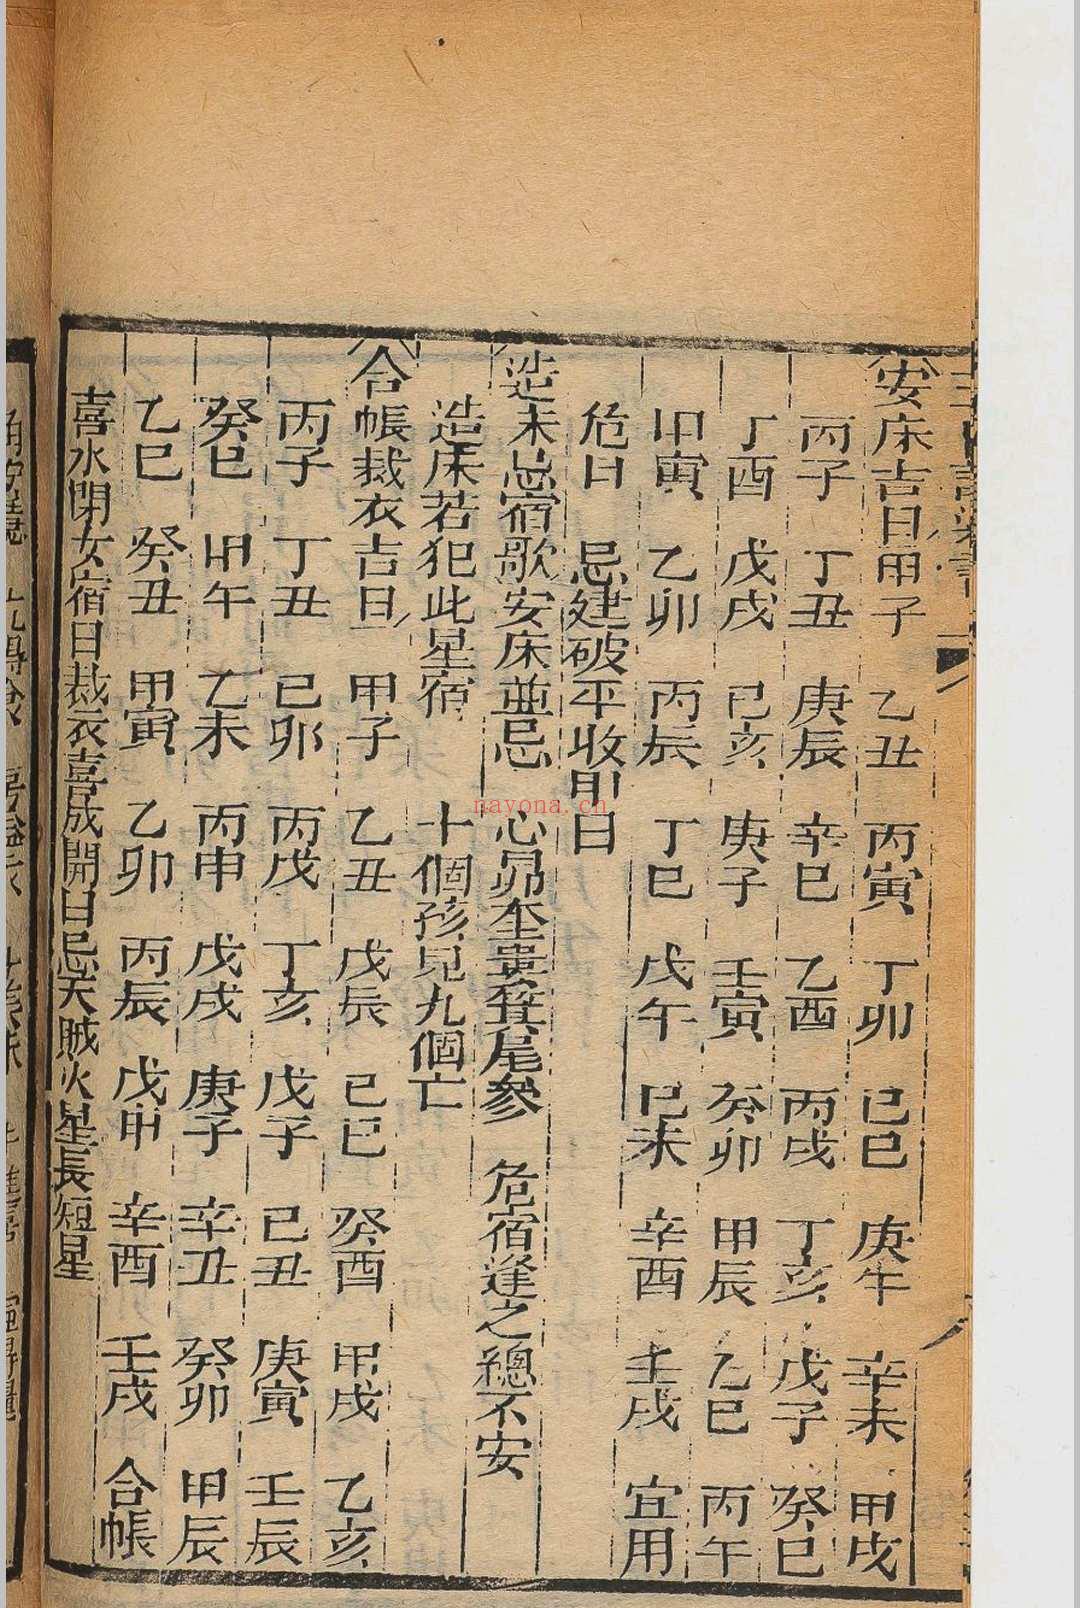 安床吉日甲子 乙丑 丙寅 丁卯 己巳 庚午 辛未 甲戌
丙子 丁丑 庚辰 辛巳 乙酉 丙戌 丁亥 戊子 癸巳
丁酉 戊戌 己亥 庚子 壬寅 癸卯 甲辰 乙巳 丙午
甲寅 乙卯 丙辰 丁巳 戊午 己未 辛酉 壬戌 宜用
危日 忌建破平收甲日
造床忌宿歌安床並忌 心昴奎婁箕尾參 危宿逢之總不安
造床若犯此星宿 十個孩兒九個亡
合帳裁衣吉日 甲子 乙丑 戊辰 己巳 癸酉 甲戌 乙亥
丙子 丁丑 己卯 丙戌 丁亥 戊子 己丑 庚寅 壬辰
癸巳 甲午 乙未 丙申 戊戌 庚子 辛丑 癸卯 甲辰
乙巳 癸丑 甲寅 乙卯 丙辰 戊申 辛酉 壬戌 合帳
喜水閉女宿日裁衣喜成開日忌天賊火星長短星
nayona.cn